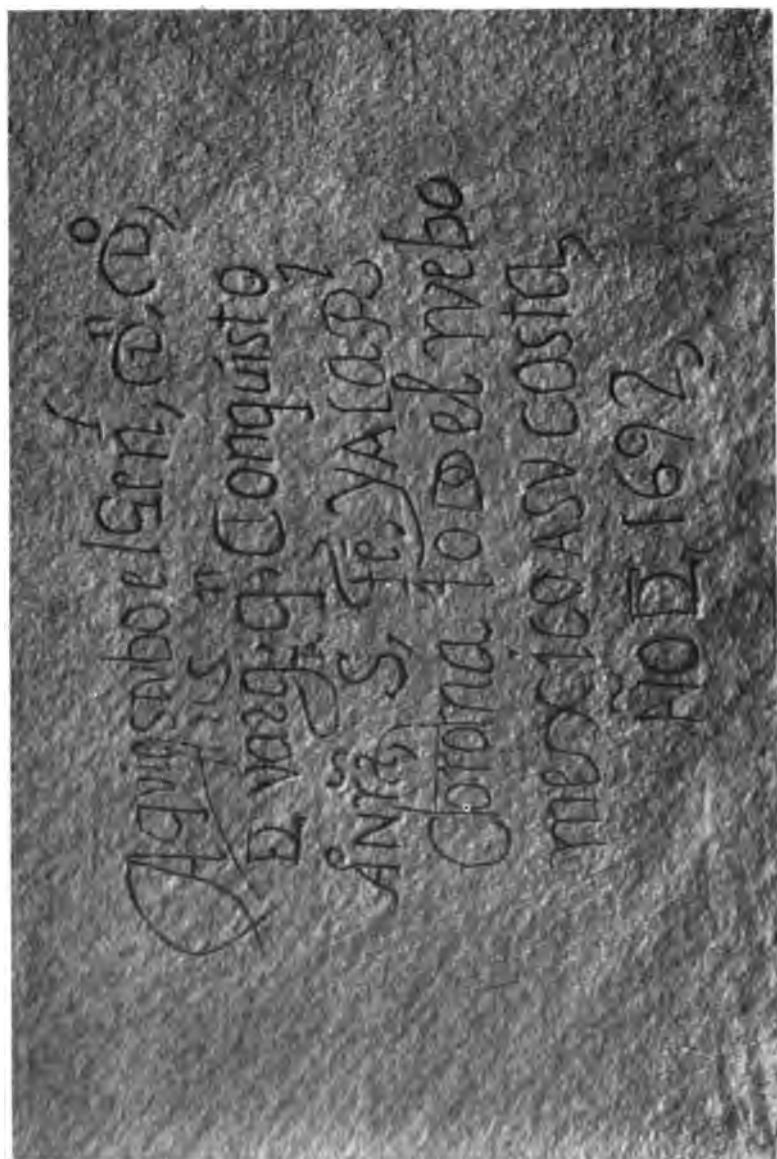 Aqui estubo el Genl, Dn, Do,
De vargs, qn Conquisto
ÅNtrā S, Fe, YALAR,l
Corona toDo el nvebo
mexico ASV COSTA,
AñO DE 1692,